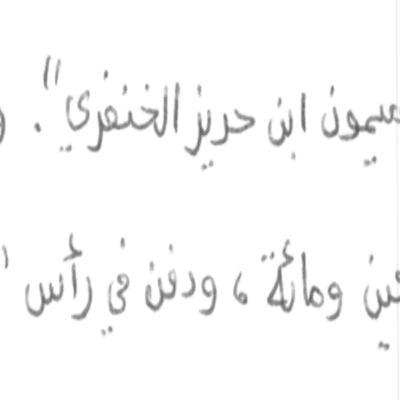 ميمون ابن حريز الخنفري".
ين ومائة، ودفن في رأس